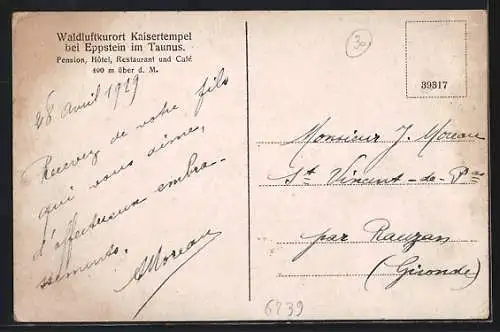 Waldluftkurort Kaisertempel
bei Eppstein im Taunus.
Pension, Hôtel, Restaurant und Café
400 m über d. M.
28 avril 1919
Recevez de votre fils
qui vous aime,
d'affectueux embra-
ssements.
Moreau
30
39317
Monsieur J. Moreau
St Vincent-de-P
par Rauzan
(Gironde)
6239